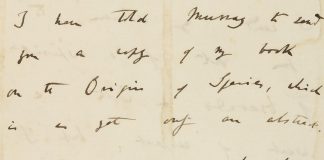 I have told Murray to send
you a copy of my book
on the Origin of Species, which
is as yet only an abstract.